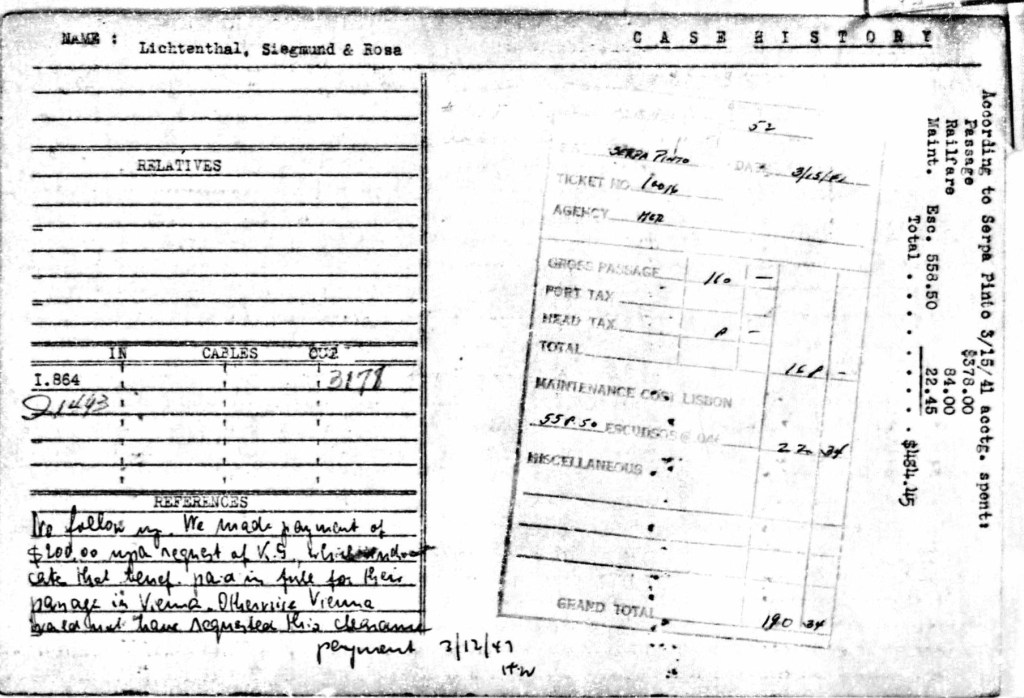 NAME : Lichtenthal, Siegmund & Rosa
CASE HISTORY
RELATIVES
IN CABLES OUT
I.864 3178
I 1443
REFERENCES
No follow up. We made payment of
$200.00 upon request of K.G., which
cate that benef. paid in full for their
passage in Vienna. Otherwise Vienna
would not have requested this clearance
payment 2/12/47
HW
52
SERPA PINTO DATE 3/15/41
TICKET NO.
AGENCY
GROSS PASSAGE 160 —
PORT TAX
HEAD TAX 8 —
TOTAL 168 —
MAINTENANCE COST LISBON
558.50 ESCUDOS @ 22 34
MISCELLANEOUS
GRAND TOTAL 190 34
According to Serpa Pinto 3/15/41 acctg. spent:
Passage $378.00
Railfare 84.00
Maint. Esc. 558.50 22.45
Total . . . . . . . . . $484.45